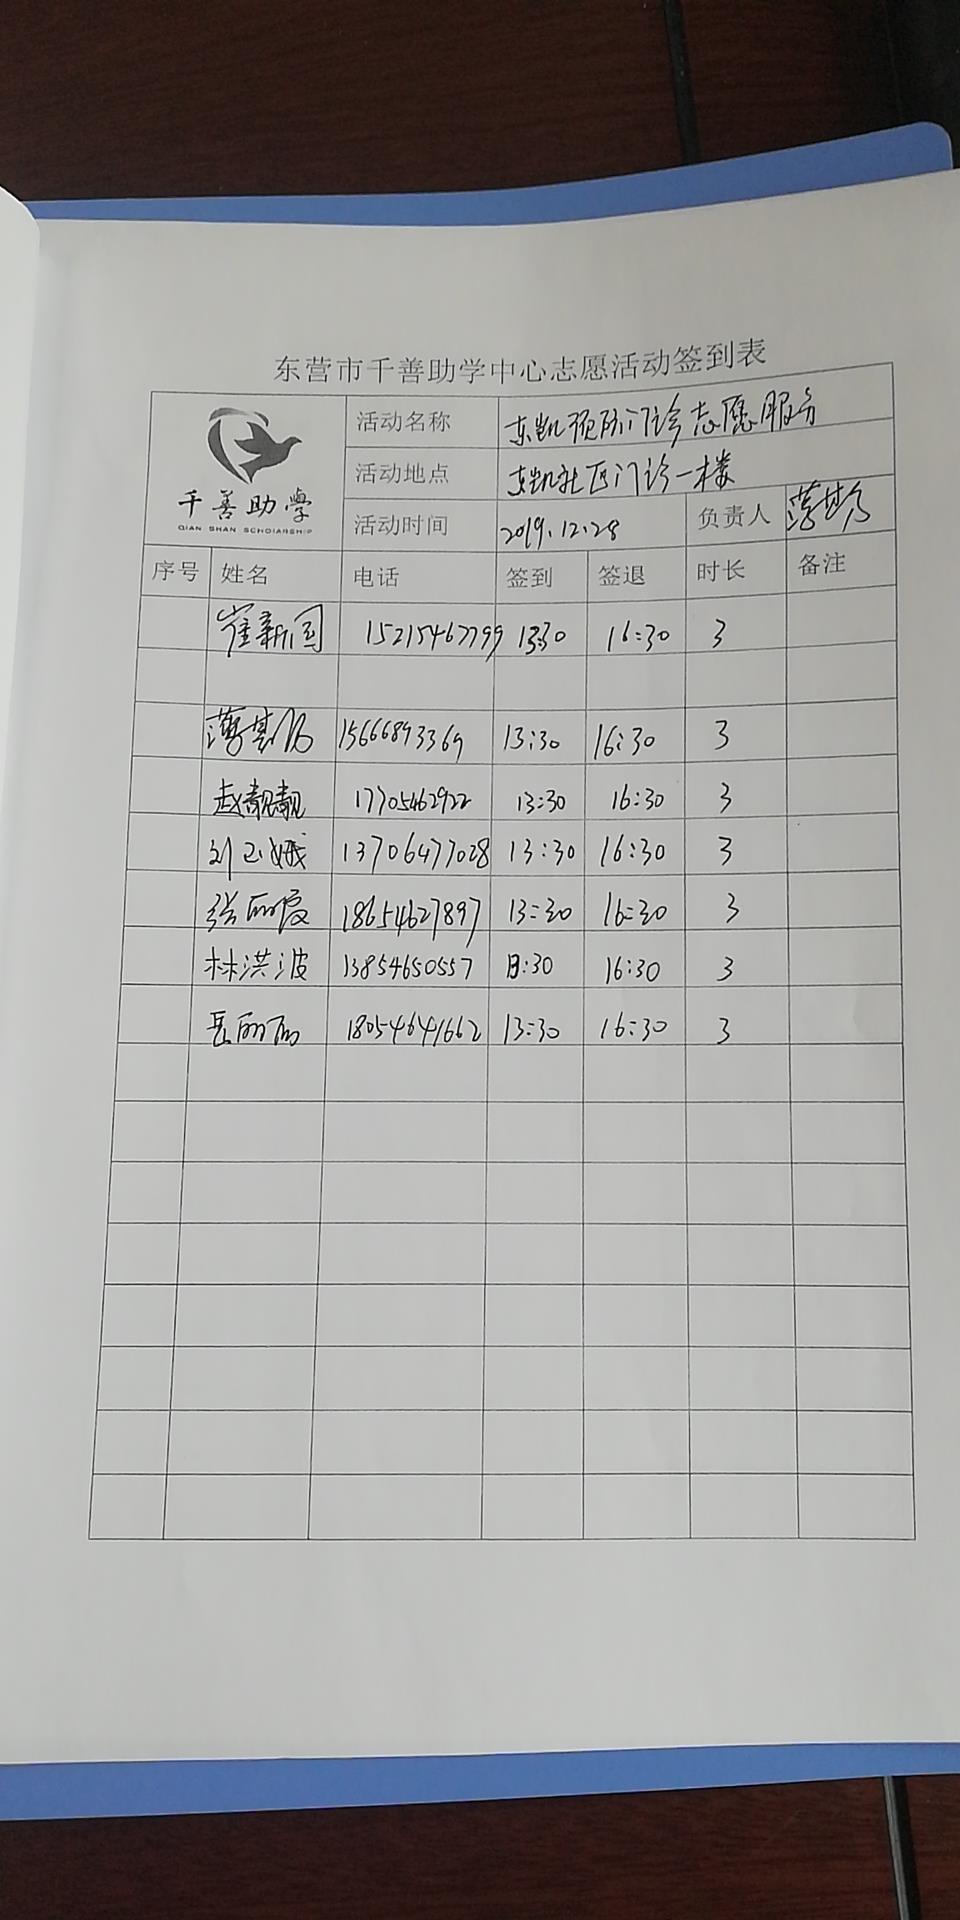 东营市千善助学中心志愿活动签到表
千善助學
QIAN SHAN SCHOLARSHIP
活动名称 东凯预防门诊志愿服务
活动地点 东凯社区门诊一楼
活动时间 2019.12.28 负责人
序号 姓名 电话 签到 签退 时长 备注
崔新国 15215467799 13:30 16:30 3
15666893369 13:30 16:30 3
赵靓靓 17705462922 13:30 16:30 3
刘玉娥 13706477028 13:30 16:30 3
张丽霞 18654627897 13:30 16:30 3
林洪波 13854650557 13:30 16:30 3
岳丽丽 18054641662 13:30 16:30 3